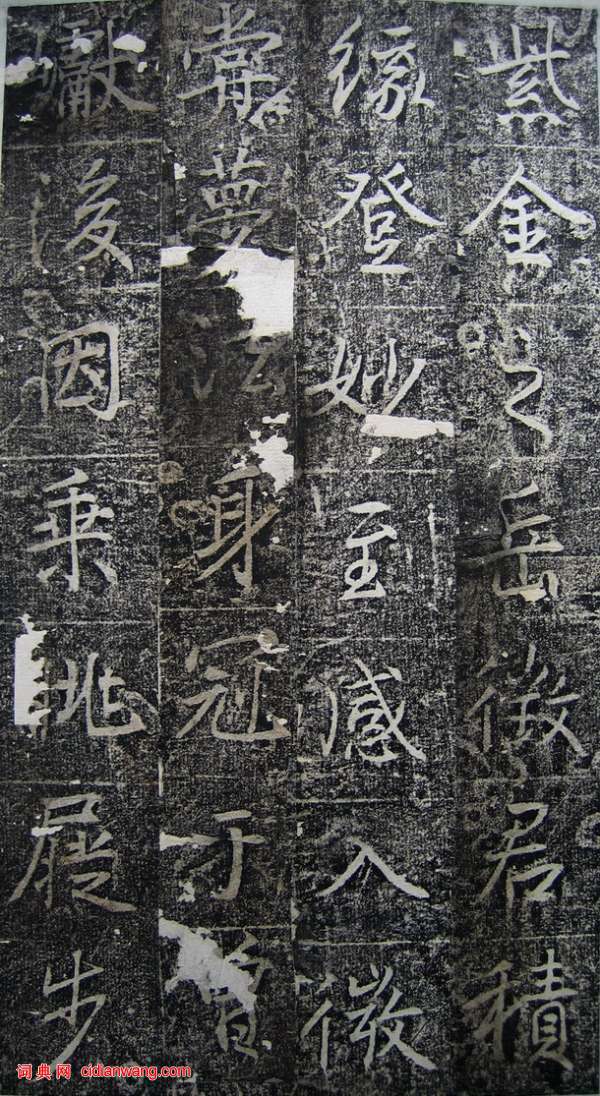 紫金之岳徵君積
緣登妙至感入微
嘗夢法身冠于曾
巘後因垂眺屣步
词典网 cidianwang.com